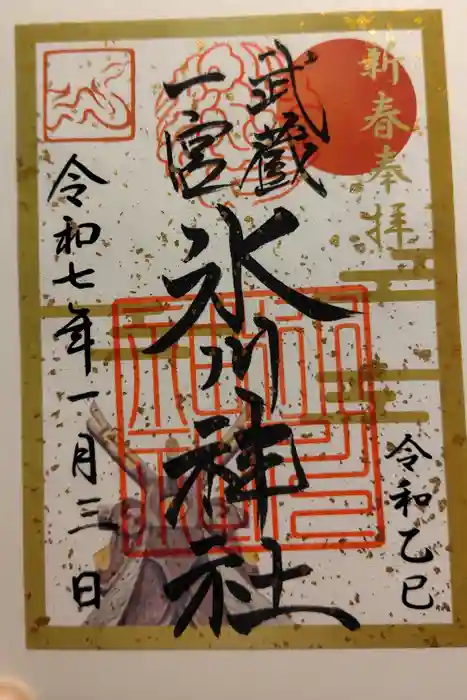 新春奉拝
武蔵
一宮
氷川神社
令和七年一月三日
令和乙巳